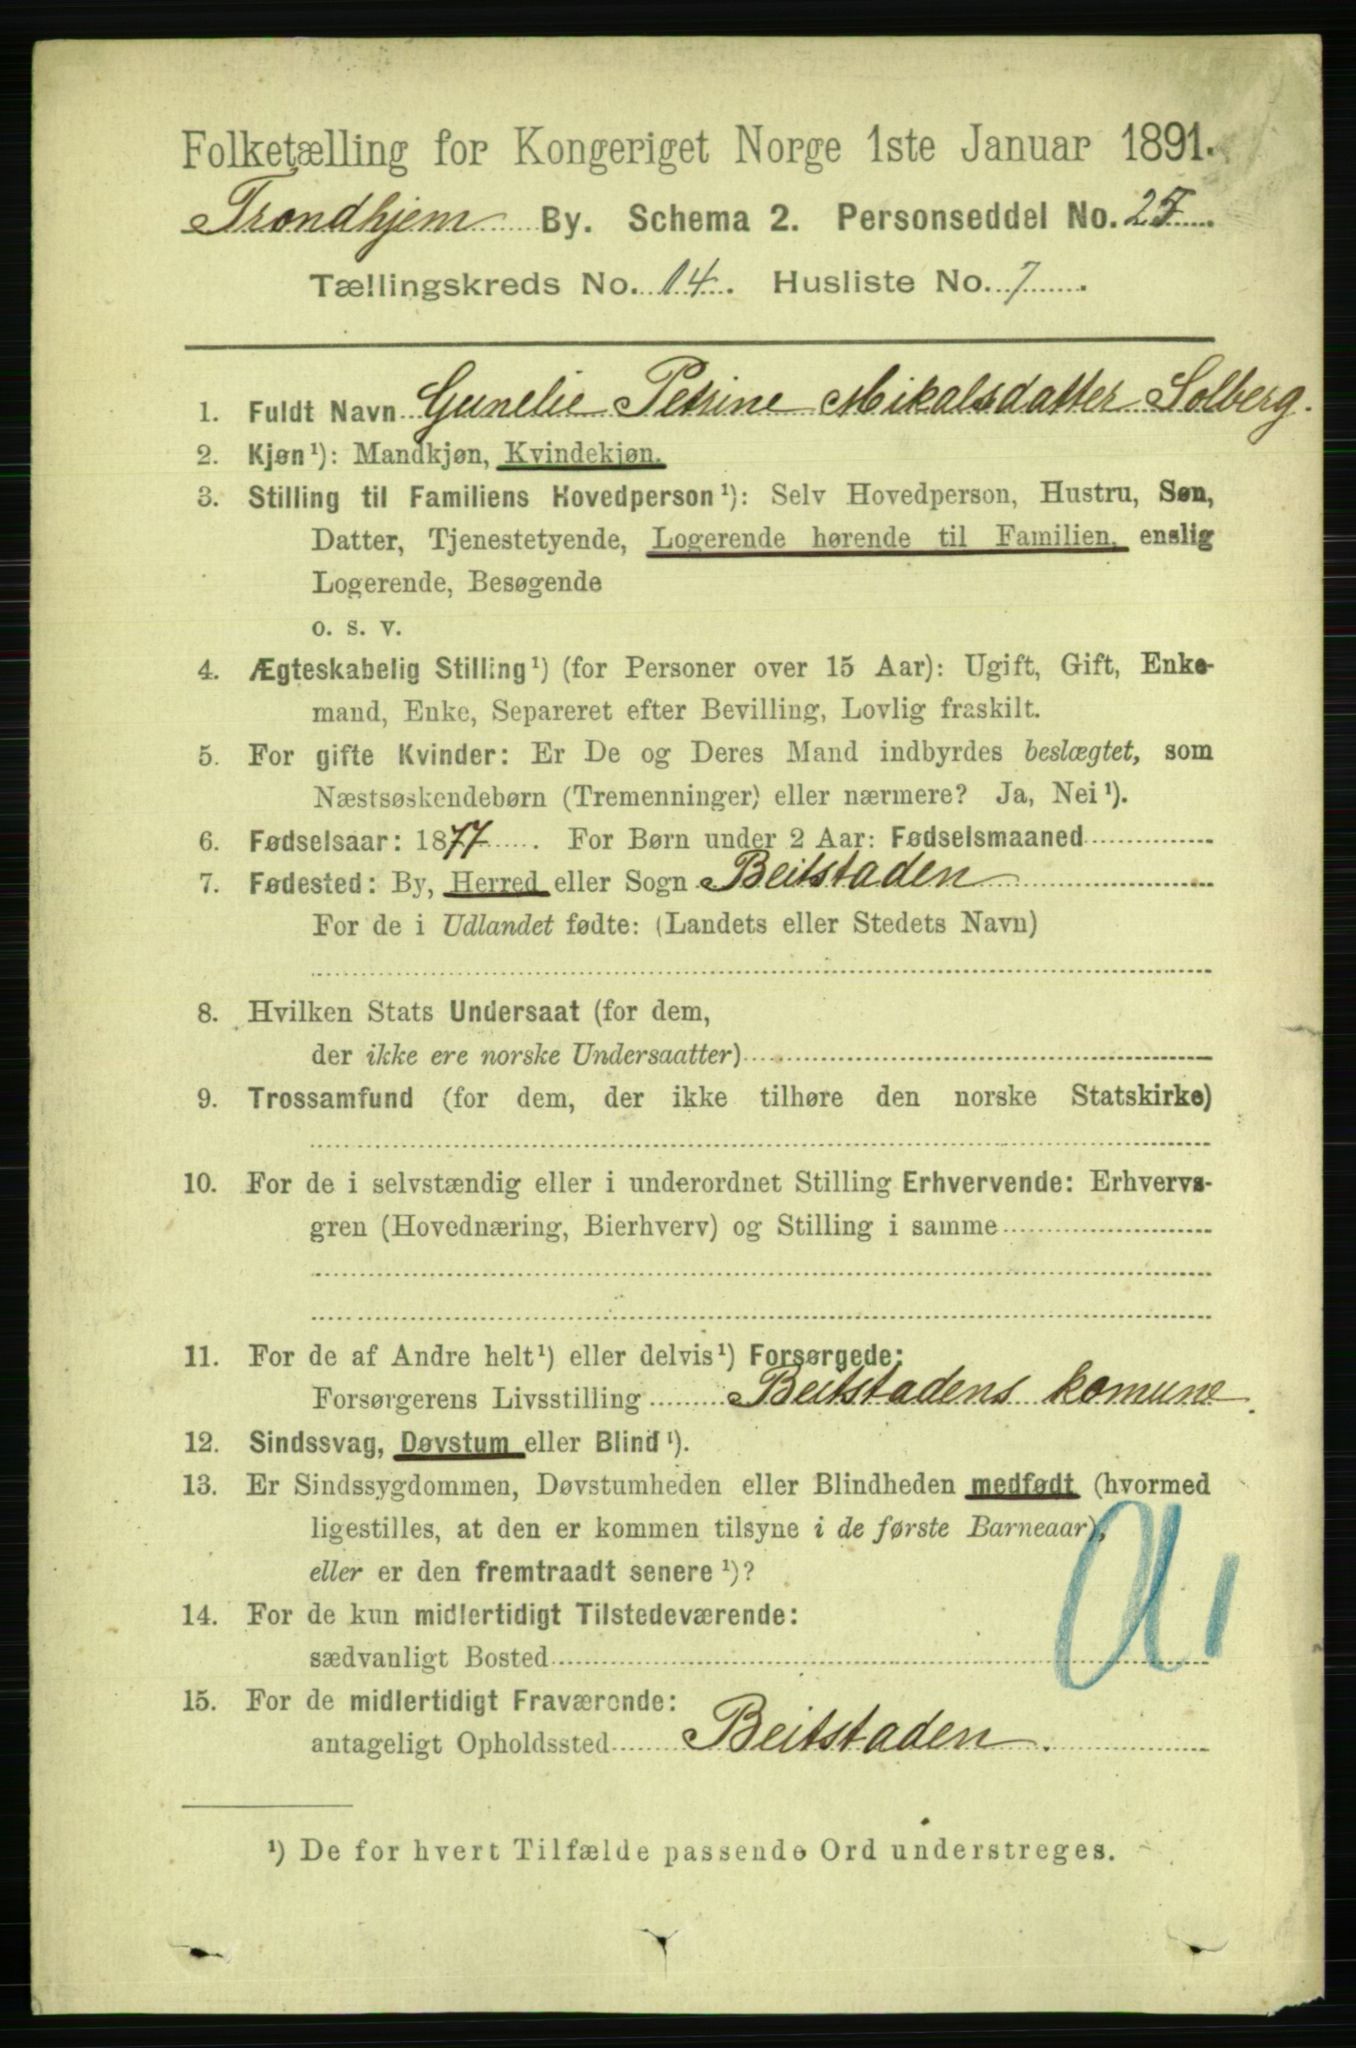 Folketælling for Kongeriget Norge 1ste Januar 1891.
Trondhjem By. Schema 2. Personseddel No. 25
Tællingskreds No. 14. Husliste No. 7.
1. Fuldt Navn Gunelie Petrine Mikalsdatter Solberg.
2. Kjøn¹): Mandkjøn, Kvindekjøn.
3. Stilling til Familiens Hovedperson¹): Selv Hovedperson, Hustru, Søn,
Datter, Tjenestetyende, Logerende hørende til Familien, enslig
Logerende, Besøgende
o. s. v.
4. Ægteskabelig Stilling¹) (for Personer over 15 Aar): Ugift, Gift, Enke-
mand, Enke, Separeret efter Bevilling, Lovlig fraskilt.
5. For gifte Kvinder: Er De og Deres Mand indbyrdes beslægtet, som
Næstsøskendebørn (Tremenninger) eller nærmere? Ja, Nei¹).
6. Fødselsaar: 1877. For Børn under 2 Aar: Fødselsmaaned
7. Fødested: By, Herred eller Sogn Beitstaden
For de i Udlandet fødte: (Landets eller Stedets Navn)
8. Hvilken Stats Undersaat (for dem,
der ikke ere norske Undersaatter)
9. Trossamfund (for dem, der ikke tilhøre den norske Statskirke)
10. For de i selvstændig eller i underordnet Stilling Erhvervende: Erhvervs-
gren (Hovednæring, Bierhverv) og Stilling i samme
11. For de af Andre helt¹) eller delvis¹) Forsørgede:
Forsørgerens Livsstilling Beitstadens komune.
12. Sindssvag, Døvstum eller Blind¹).
13. Er Sindssygdommen, Døvstumheden eller Blindheden medfødt (hvormed
ligestilles, at den er kommen tilsyne i de første Barneaar),
eller er den fremtraadt senere¹)?
14. For de kun midlertidigt Tilstedeværende:
sædvanligt Bosted
15. For de midlertidigt Fraværende:
antageligt Opholdssted Beitstaden.
¹) De for hvert Tilfælde passende Ord understreges.